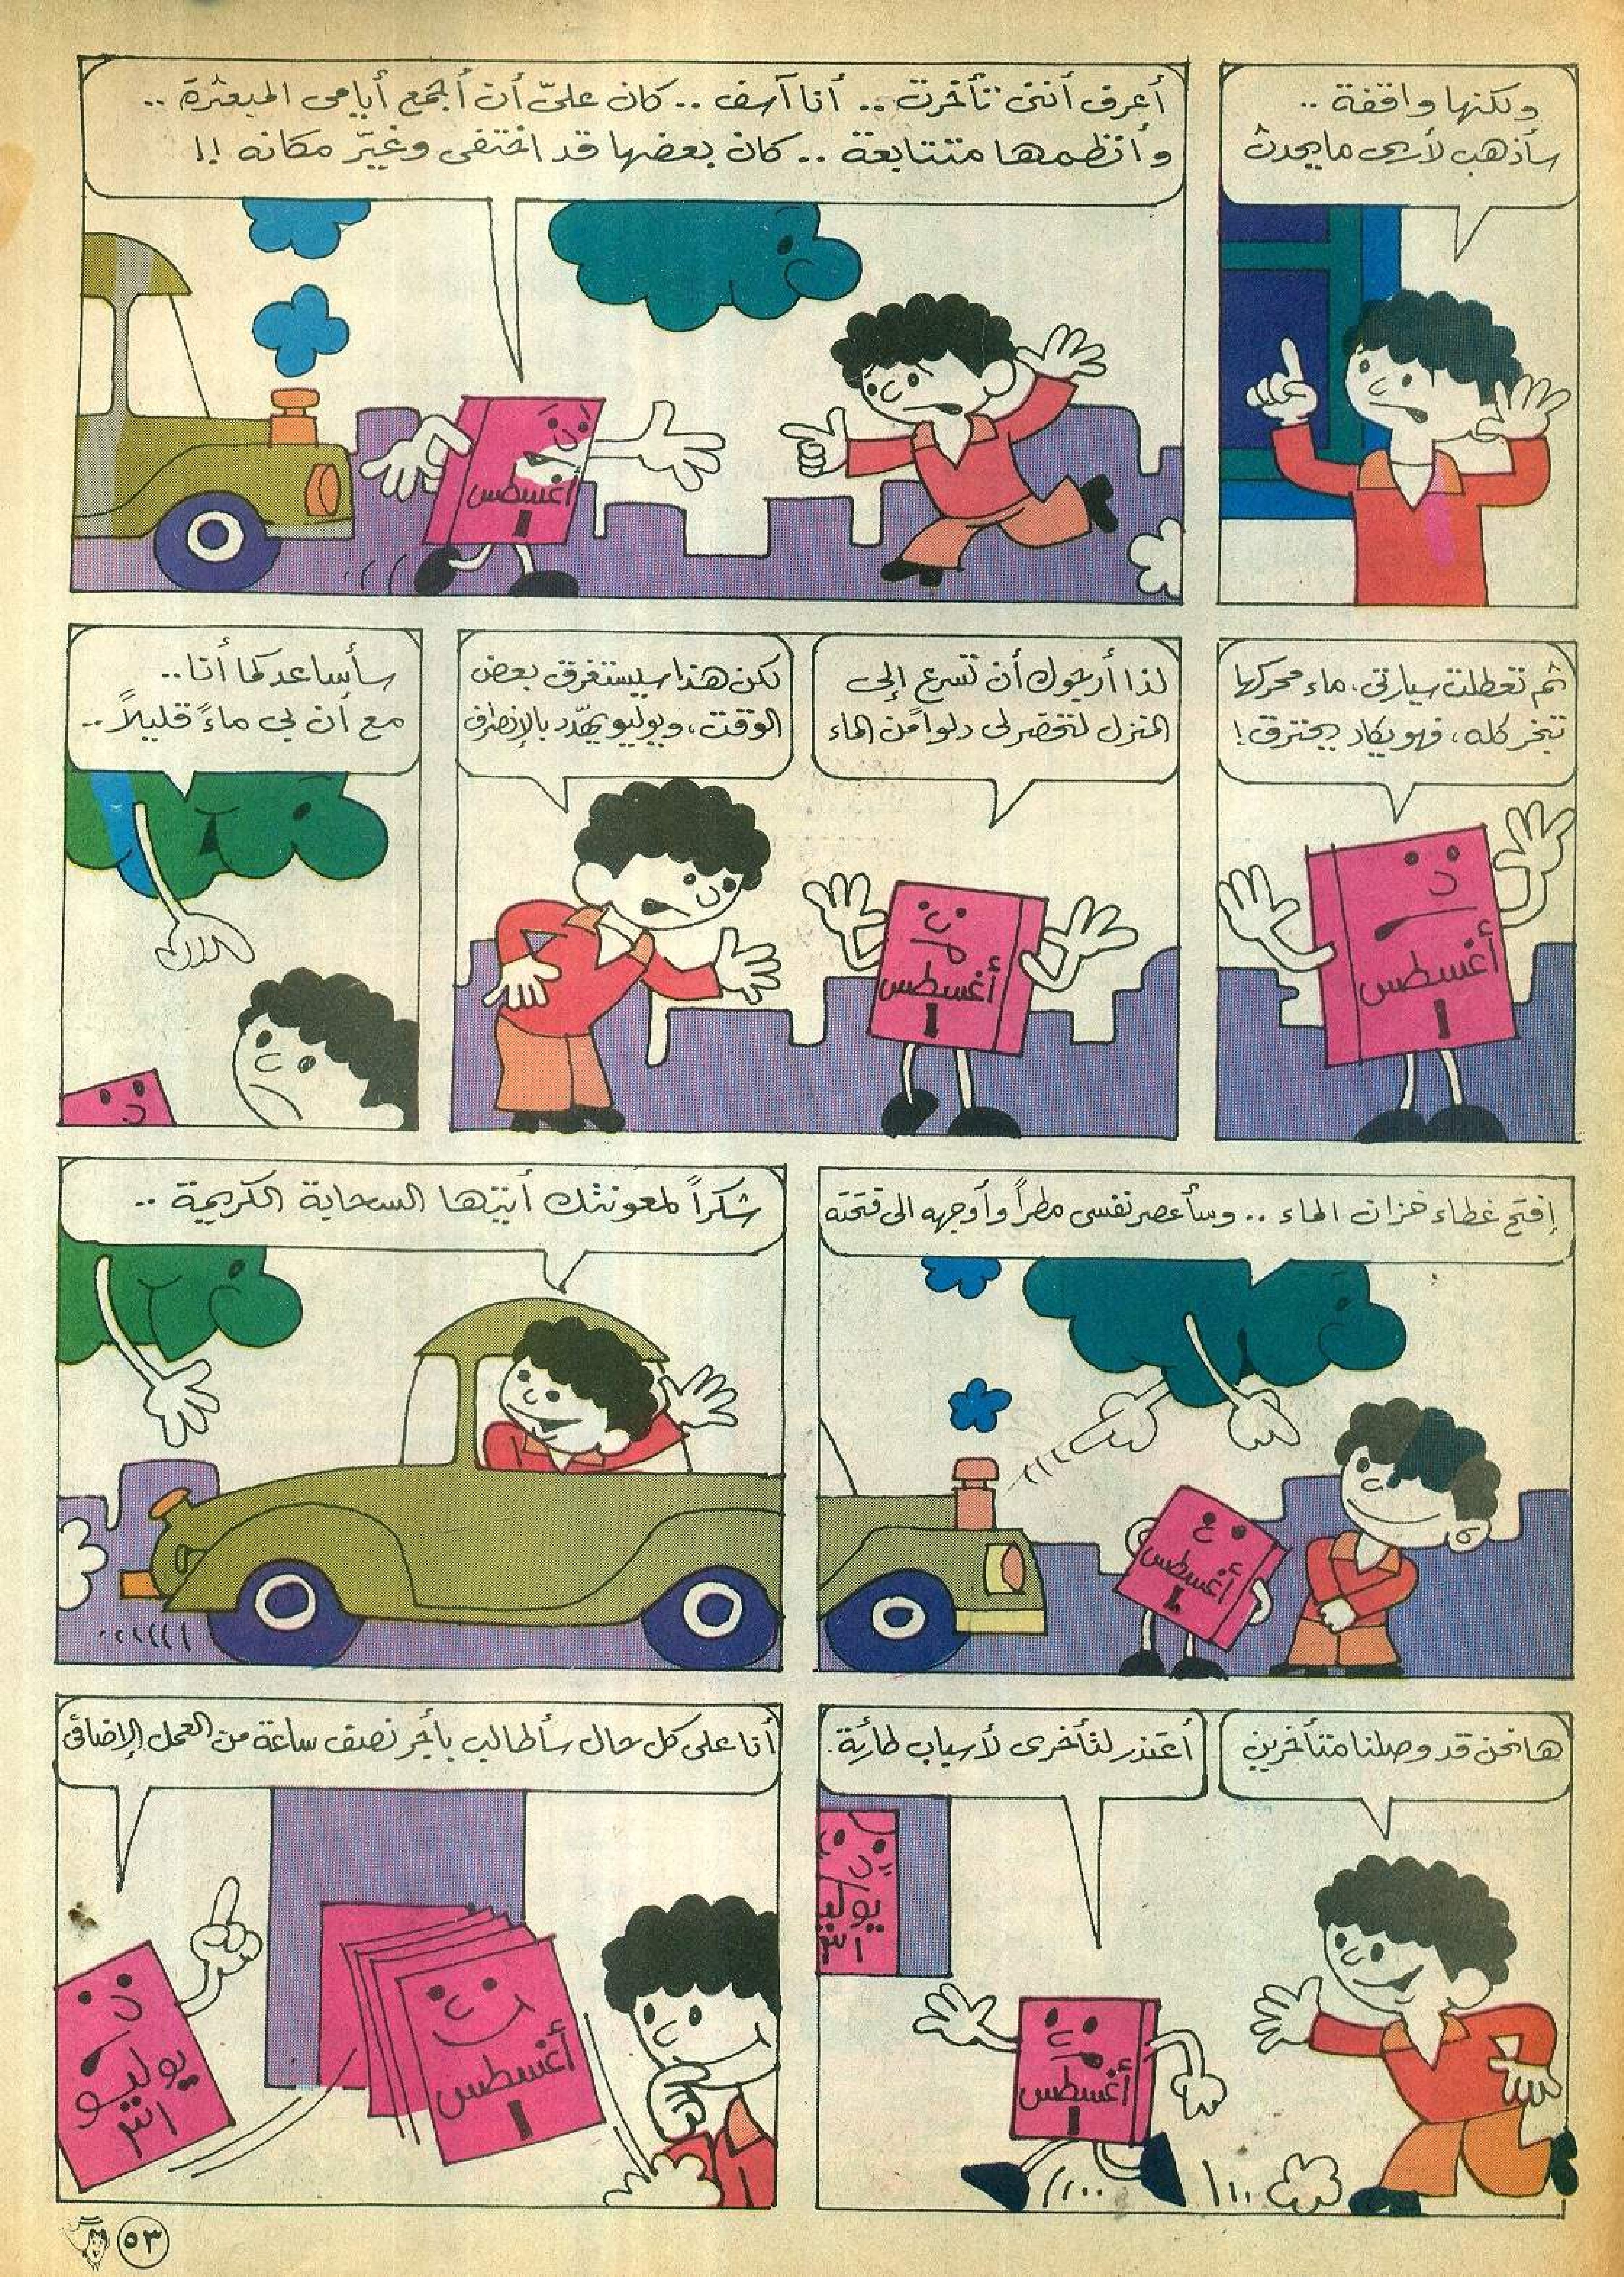 ولكنها واقفة ..
سأذهب لأرى ما يحدث
أعرف أنني تأخرت .. أنا آسف .. كان عليّ أن أجمع أيامي المبعثرة ..
وأنظمها متتابعة .. كان بعضها قد اختفى وغيّر مكانه !!
أغسطس
١
ثم تعطلت سيارتي، ماء محركها
تبخر كله، فهو يكاد يحترق!
أغسطس
١
لذا أرجوك أن تسرع إلى
المنزل لتحضر لي دلوا من الماء
لكن هذا سيستغرق بعض
الوقت، ويوليو يهدّد بالإنصراف
أغسطس
١
سأساعدكما أنا ..
مع أن لي ماءً قليلاً ..
إفتح غطاء خزان الماء .. وسأعصر نفسي مطراً وأوجهه الى فتحته
أغسطس
١
شكراً لمعونتك أيتها السحابة الكريمة ..
ها نحن قد وصلنا متأخرين
أعتذر لتأخري لأسباب طارئة.
يوليو
٣١
أغسطس
١
أنا على كل حال سأطالب بأجر نصف ساعة من العمل الإضافي
أغسطس
١
يوليو
٣١
٥٣